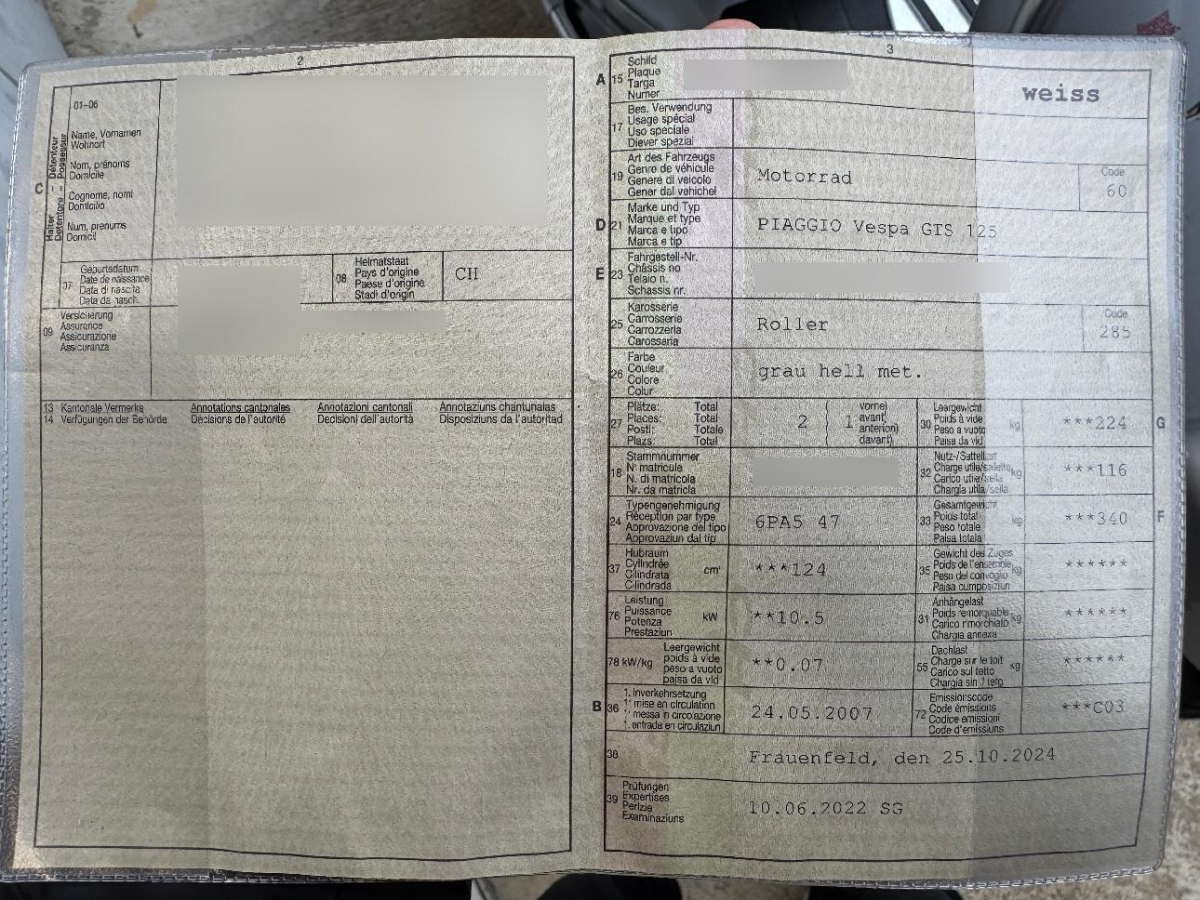 2
01-06
C
Halter - Détenteur
Detentore - Possessur
Name, Vornamen
Wohnort
Nom, prénoms
Domicile
Cognome, nomi
Domicilio
Num, prenums
Domicil
07
Geburtsdatum
Date de naissance
Data di nascita
Data da nasch.
08
Heimatstaat
Pays d'origine
Paese d'origine
Stadi d'origin
CH
09
Versicherung
Assurance
Assicurazione
Assicuranza
13 Kantonale Vermerke Annotations cantonales Annotazioni cantonali Annotaziuns chantunalas
14 Verfügungen der Behörde Décisions de l'autorité Decisioni dell'autorità Disposiziuns da l'autoritad
3
A 15
Schild
Plaque
Targa
Numer
weiss
17
Bes. Verwendung
Usage spécial
Uso speciale
Diever spezial
19
Art des Fahrzeugs
Genre de véhicule
Genere di veicolo
Gener dal vehichel
Motorrad
Code
60
D 21
Marke und Typ
Marque et type
Marca e tipo
Marca e tip
PIAGGIO Vespa GTS 125
E 23
Fahrgestell-Nr.
Châssis no
Telaio n.
Schassis nr.
25
Karosserie
Carrosserie
Carrozzeria
Carossaria
Roller
Code
285
26
Farbe
Couleur
Colore
Colur
grau hell met.
27
Plätze: Total
Places: Total
Posti: Totale
Plazs: Total
2 ( 1
vorne)
avant)
anteriori)
davant)
30
Leergewicht
Poids à vide
Peso a vuoto
Paisa da vid
kg
***224
G
18
Stammnummer
N° matricule
N. di matricola
Nr. da matricla
32
Nutz-/Sattellast
Charge utile/sellette
Carico utile/sella
Chargia utila/sella
kg
***116
24
Typengenehmigung
Réception par type
Approvazione del tipo
Approvaziun dal tip
6PA5 47
33
Gesamtgewicht
Poids total
Peso totale
Paisa totala
kg
***340
F
37
Hubraum
Cylindrée
Cilindrata
Cilindrada
cm³
***124
35
Gewicht des Zuges
Poids de l'ensemble
Peso del convoglio
Paisa cumposiziun
kg
******
76
Leistung
Puissance
Potenza
Prestaziun
kW
**10.5
31
Anhängelast
Poids remorquable
Carico rimorchiato
Chargia annexa
kg
******
78 kW/kg
Leergewicht
poids à vide
peso a vuoto
paisa da vid
**0.07
55
Dachlast
Charge sur le toit
Carico sul tetto
Chargia sin il tetg
kg
******
B 36
1. Inverkehrsetzung
1re mise en circulation
1. messa in circolazione
1. entrada en circulaziun
24.05.2007
72
Emissionscode
Code émissions
Codice emissioni
Code d'emissiuns
***C03
38
Frauenfeld, den 25.10.2024
39
Prüfungen
Expertises
Perizie
Examinaziuns
10.06.2022 SG